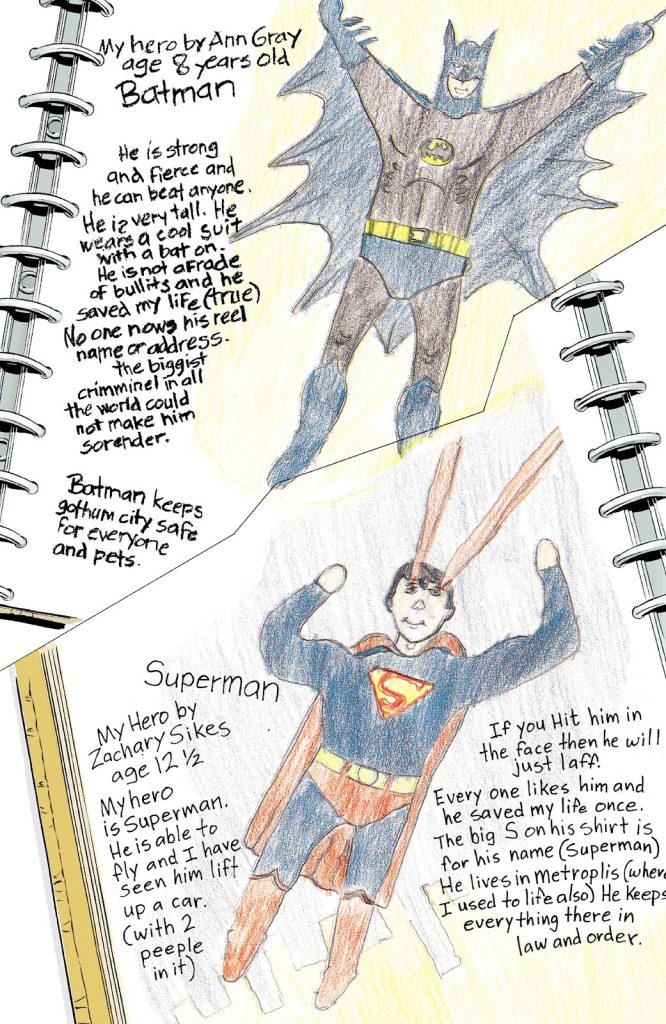 My hero by Ann Gray
age 8 years old
Batman
He is strong
and fierce and
he can beat anyone.
He iz very tall. He
wears a cool suit
with a bat on.
He is not afrade
of bullits and he
saved my life (true)
No one nows his reel
name or address.
the biggist
crimminel in all
the world could
not make him
sorender.
Batman keeps
gothum city safe
for everyone
and pets.
Superman
My Hero by
Zachary Sikes
age 12 ½
My hero
is Superman.
He is able to
fly and I have
seen him lift
up a car.
(with 2
peeple
in it)
If you Hit him in
the face then he will
just laff.
Every one likes him and
he saved my life once.
The big S on his shirt is
for his name (Superman)
He lives in metroplis (where
I used to life also) He keeps
everything there in
law and order.
S